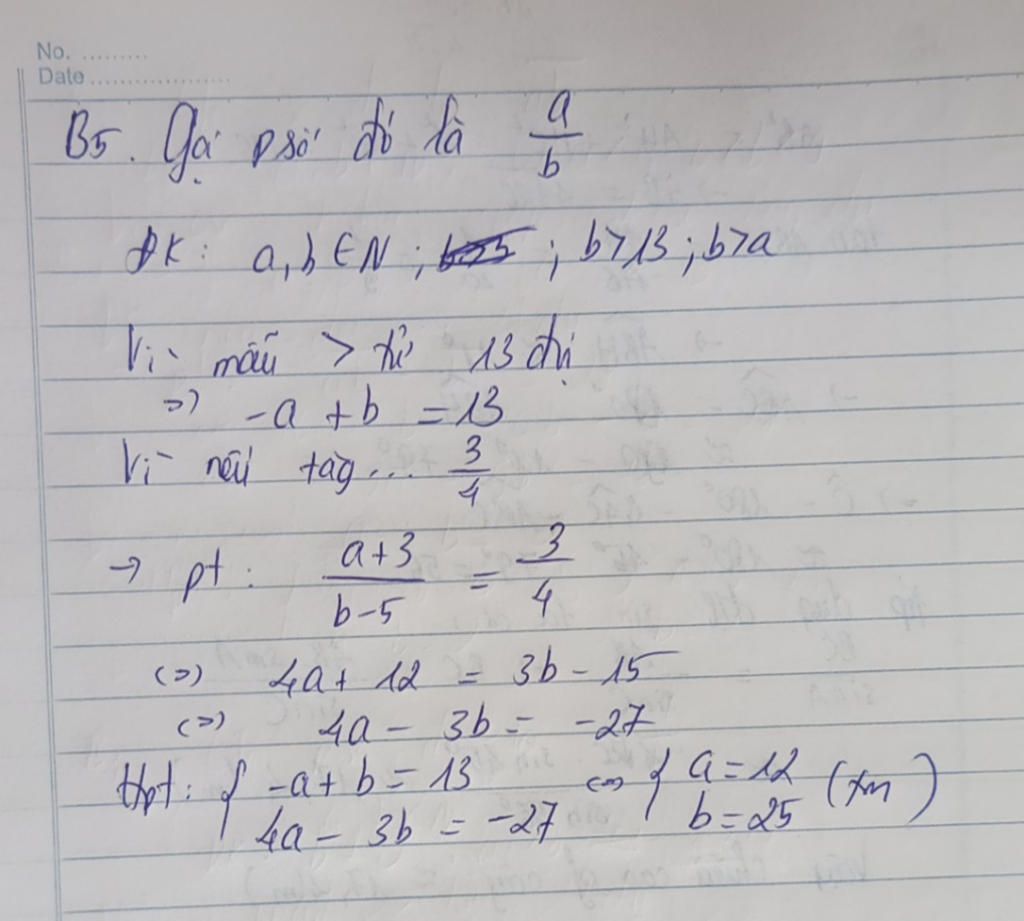 No. .........
Date ...................
B5. Gọi p số đó là a/b
ĐK: a, b ∈ N ; b>5 ; b>13 ; b>a
Vì mẫu > tử 13 đvị
=> -a + b = 13
Vì nếu tăg... 3/4
→ pt: (a+3)/(b-5) = 3/4
<=> 4a + 12 = 3b - 15
<=> 4a - 3b = -27
Hpt: { -a + b = 13 <=> { a = 12 (tm)
4a - 3b = -27 b = 25